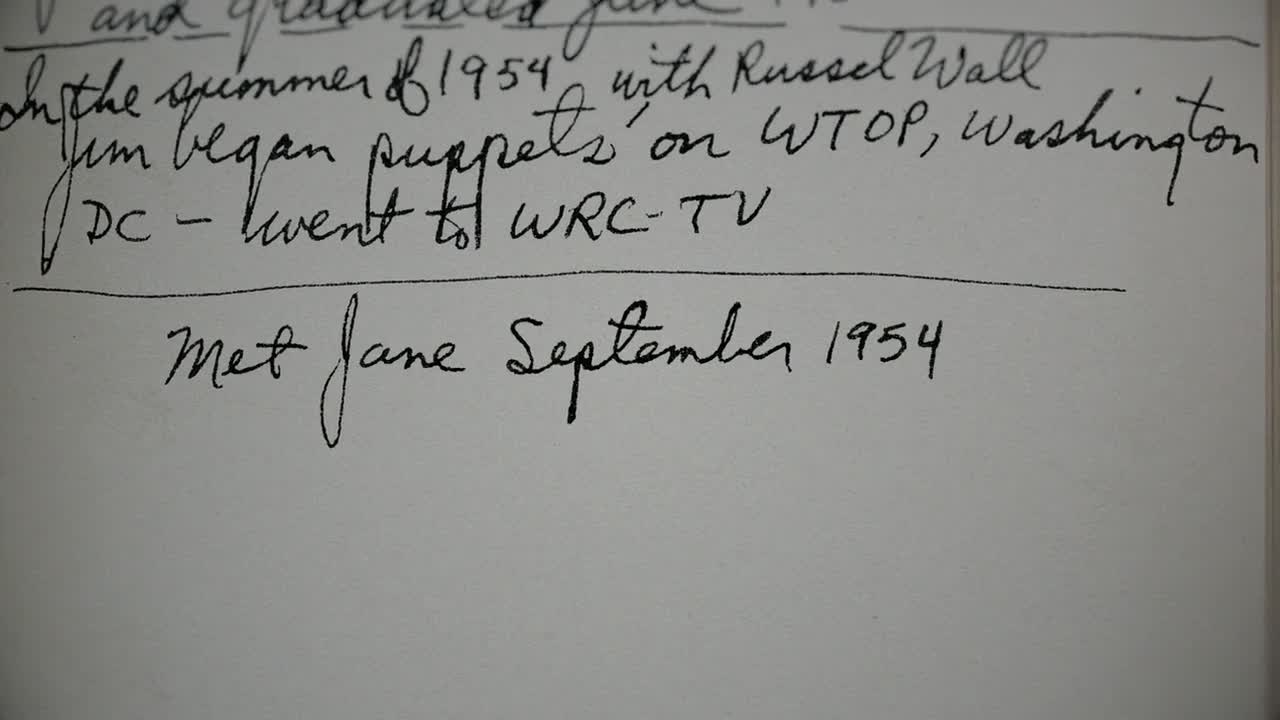 and graduated June
In the summer of 1954, with Russel Wall
Jim began puppets on WTOP, Washington
DC – went to WRC-TV
Met Jane September 1954